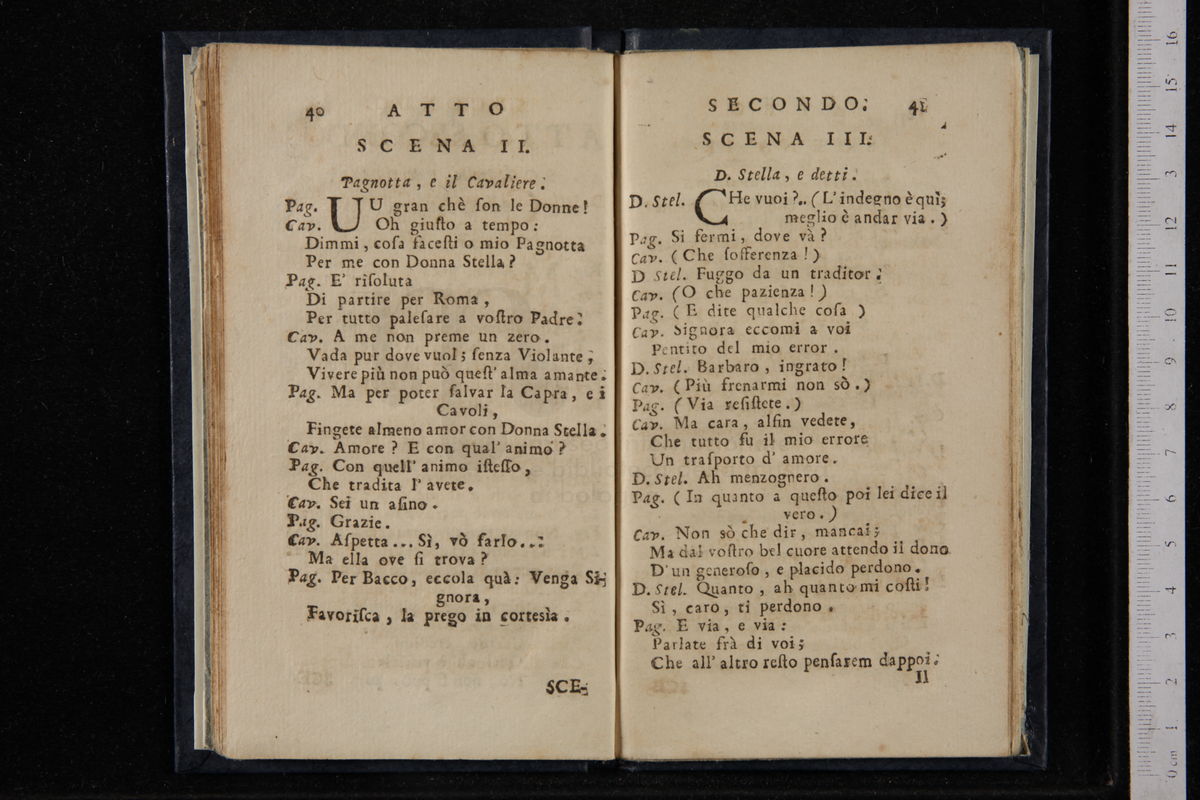 40 ATTO
SCENA II.
Pagnotta, e il Cavaliere.
Pag. UU gran chè ſon le Donne!
Cav. Oh giuſto a tempo:
Dimmi, coſa faceſti o mio Pagnotta
Per me con Donna Stella?
Pag. E' riſoluta
Di partire per Roma,
Per tutto paleſare a voſtro Padre.
Cav. A me non preme un zero.
Vada pur dove vuol; ſenza Violante,
Vivere più non può queſt' alma amante.
Pag. Ma per poter ſalvar la Capra, e i
Cavoli,
Fingete almeno amor con Donna Stella.
Cav. Amore? E con qual' animo?
Pag. Con quell' animo iſteſſo,
Che tradita l' avete.
Cav. Sei un aſino.
Pag. Grazie.
Cav. Aſpetta... Sì, vò farlo...
Ma ella ove ſi trova?
Pag. Per Bacco, eccola quà: Venga Si-
gnora,
Favoriſca, la prego in cortesìa.
SCE-
SECONDO. 41
SCENA III.
D. Stella, e detti.
D. Stel. CHe vuoi?.. (L'indegno è quì;
meglio è andar via.)
Pag. Si fermi, dove và?
Cav. (Che ſofferenza!)
D Stel. Fuggo da un traditor.
Cav. (O che pazienza!)
Pag. (E dite qualche coſa )
Cav. Signora eccomi a voi
Pentito del mio error.
D. Stel. Barbaro, ingrato!
Cav. (Più frenarmi non sò.)
Pag. (Via reſiſtete.)
Cav. Ma cara, alfin vedete,
Che tutto fu il mio errore
Un traſporto d' amore.
D. Stel. Ah menzognero.
Pag. (In quanto a queſto poi lei dice il
vero.)
Cav. Non sò che dir, mancai;
Ma dal voſtro bel cuore attendo il dono
D'un generoſo, e placido perdono.
D. Stel. Quanto, ah quanto mi coſti!
Sì, caro, ti perdono.
Pag. E via, e via:
Parlate frà di voi;
Che all' altro reſto penſarem dappoi.
Il
0 cm 1 2 3 4 5 6 7 8 9 10 11 12 13 14 15 16